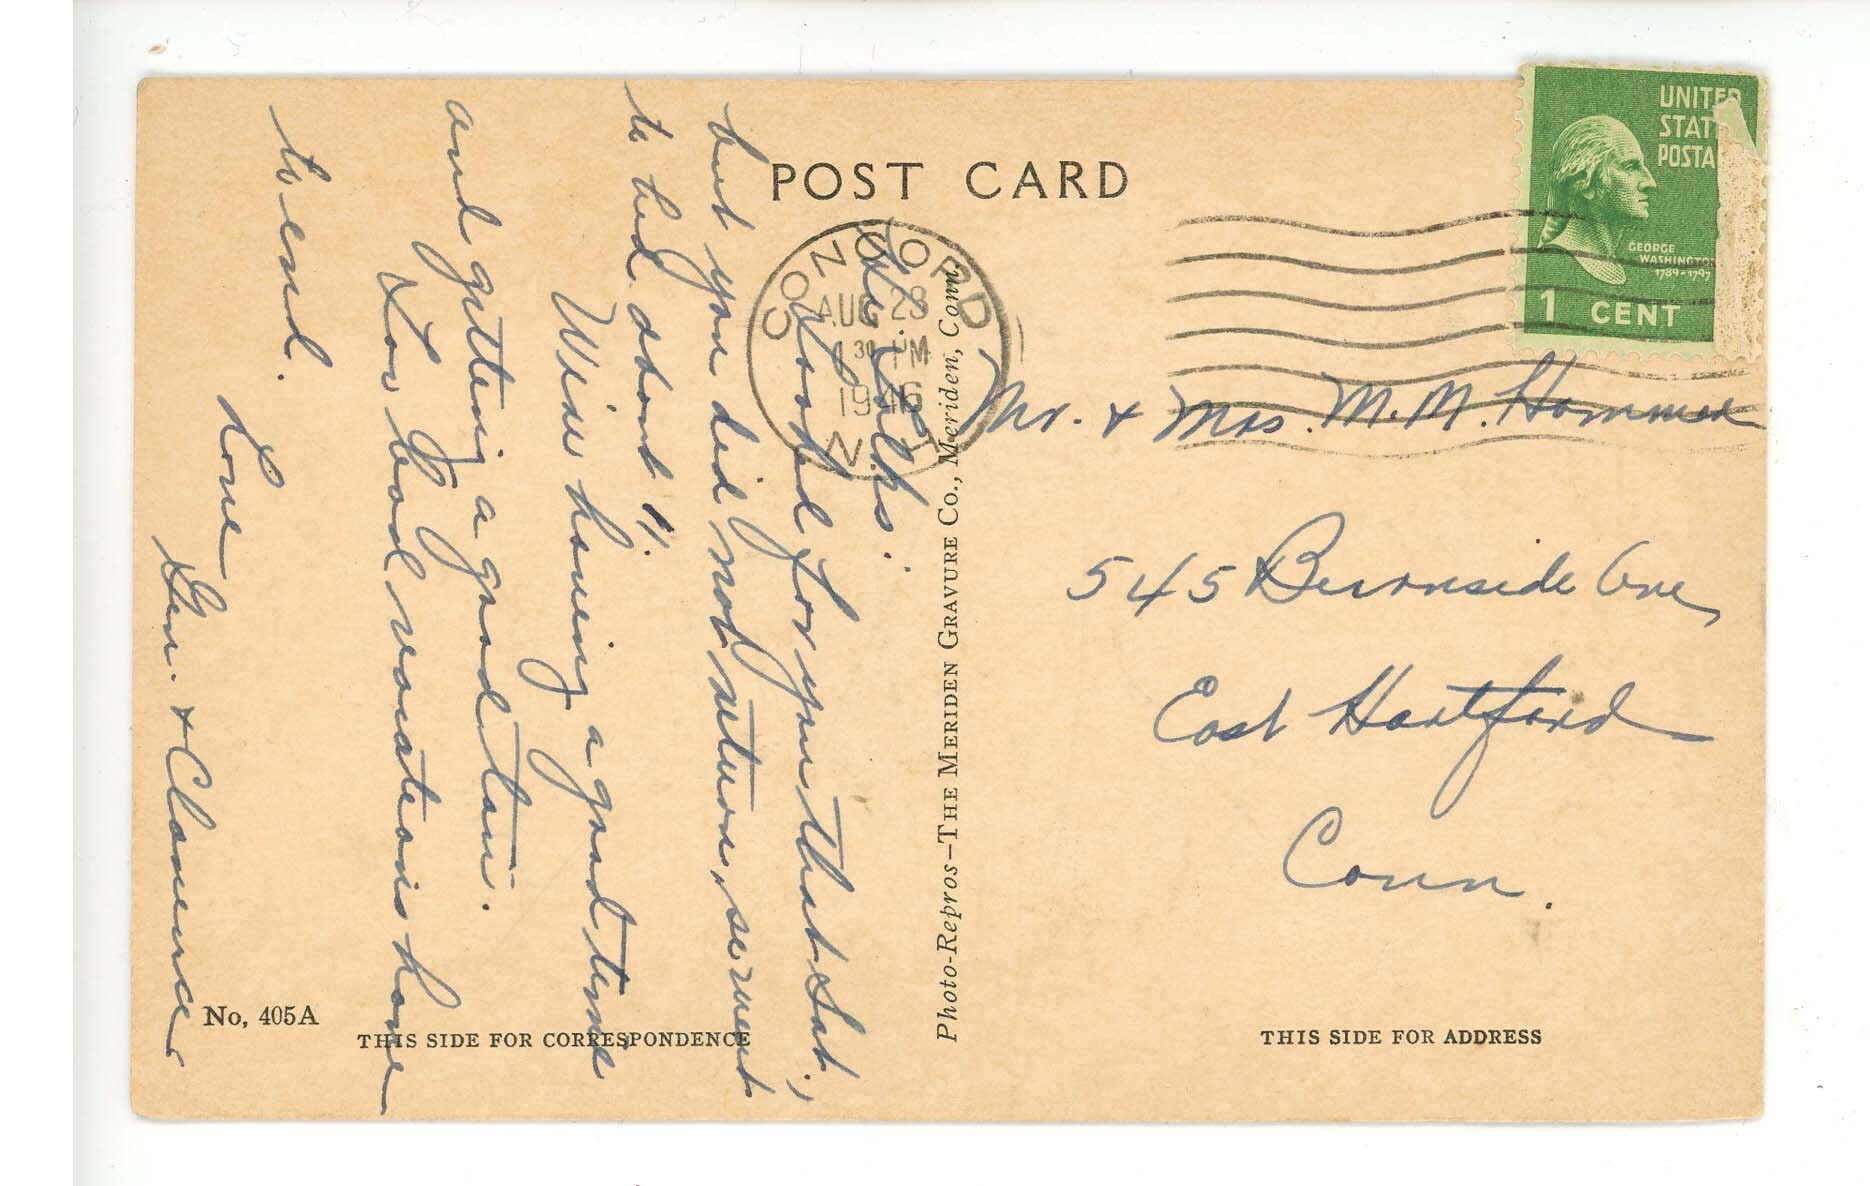 POST CARD
UNITED
STAT
POSTA
GEORGE
WASHINGTON
1789-1797
1 CENT
CONCORD
AUG 28
30 PM
1946
N
Hi Folks:
Looked for you that Sat.,
but you did not return, so went
to bed about 11.
Were having a good time
and getting a good tan.
Too bad vacations have
to end.
Love
Gen. & Clarence
Mr. & Mrs. M. M.
545 Burnside Ave,
East Hartford
Conn.
Photo-Repros—THE MERIDEN GRAVURE CO., Meriden, Conn.
No, 405A
THIS SIDE FOR CORRESPONDENCE
THIS SIDE FOR ADDRESS